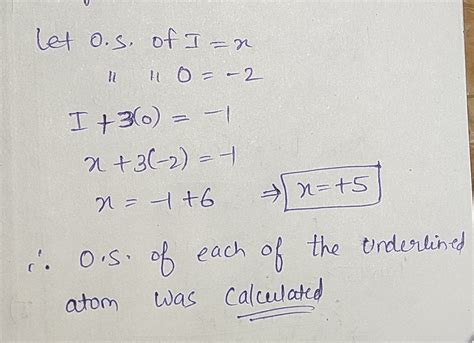 Let O.S. of I = x
" " O = -2
I + 3(O) = -1
x + 3(-2) = -1
x = -1 + 6 ⇒ x = +5
∴ O.S. of each of the underlined
atom was calculated